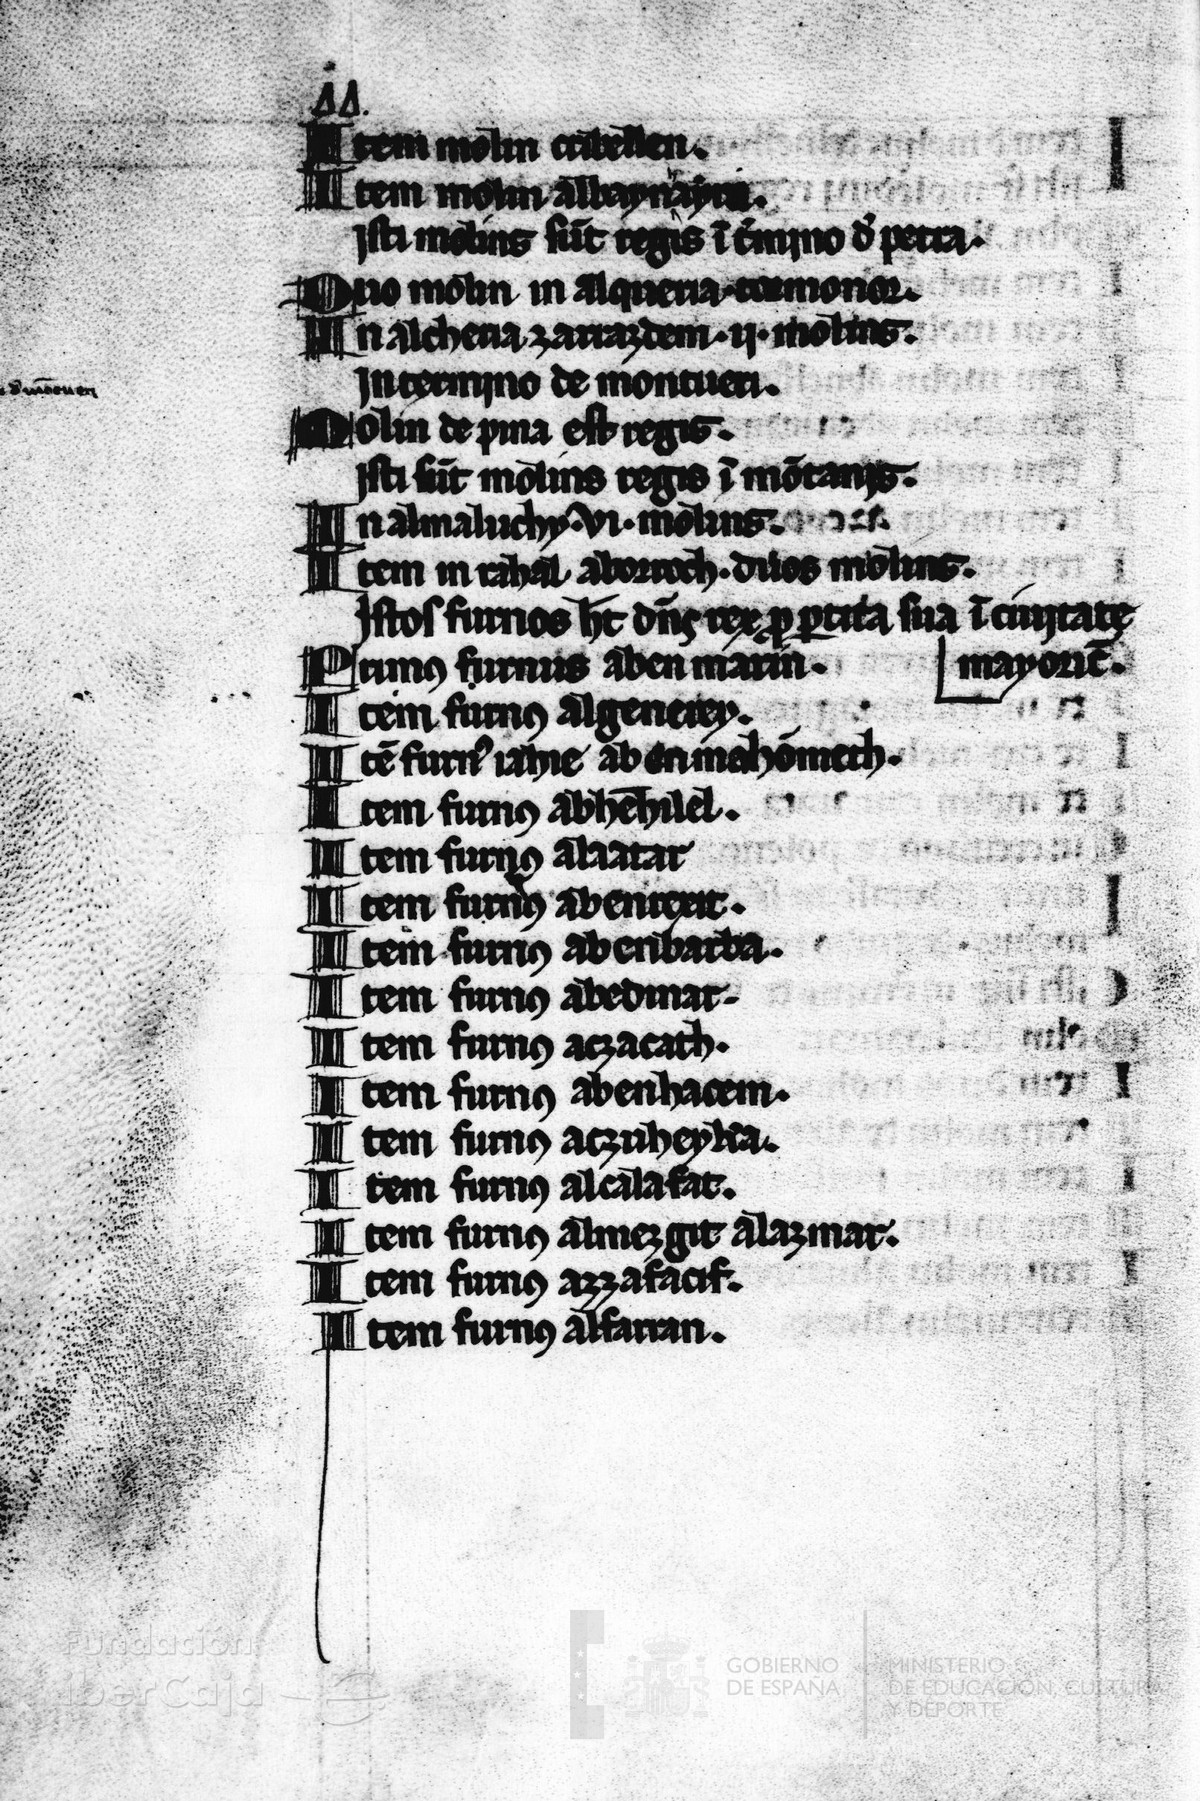 Item molin cribellen.
Item molin albaynayre.
Isti molins sūt regis ī t̄mino d' petra.
Duo molin in alqueria tormonor.
In alcheria zariazdem · ij · molins.
In termino de montueri.
Molin de pina est regis.
Isti sūt molins regis ī mōtanis.
In almaluchy · vi · molins.
Item in rahal aborroch · duos molins.
Istos furnos h̄t dn̄s rex p̲ p̲tita sua ī ciuitate
mayoric̄.
Primꝯ furnus aben marin.
Item furnꝯ algenerey.
Itē furn' iahie aben mahōmeth.
Item furnꝯ abhehilel.
Item furnꝯ alaatar
Item furnꝯ abenrerit.
Item furnꝯ abenbarba.
Item furnꝯ abedmar.
Item furnꝯ aczacath.
Item furnꝯ abenhacem.
Item furnꝯ alcalafat.
Item furnꝯ almezgit alazmar.
Item furnꝯ azzafacif.
Item furnꝯ alfarran.
Fundación
iberCaja
GOBIERNO
DE ESPAÑA
MINISTERIO
DE EDUCACIÓN, CULTURA
Y DEPORTE